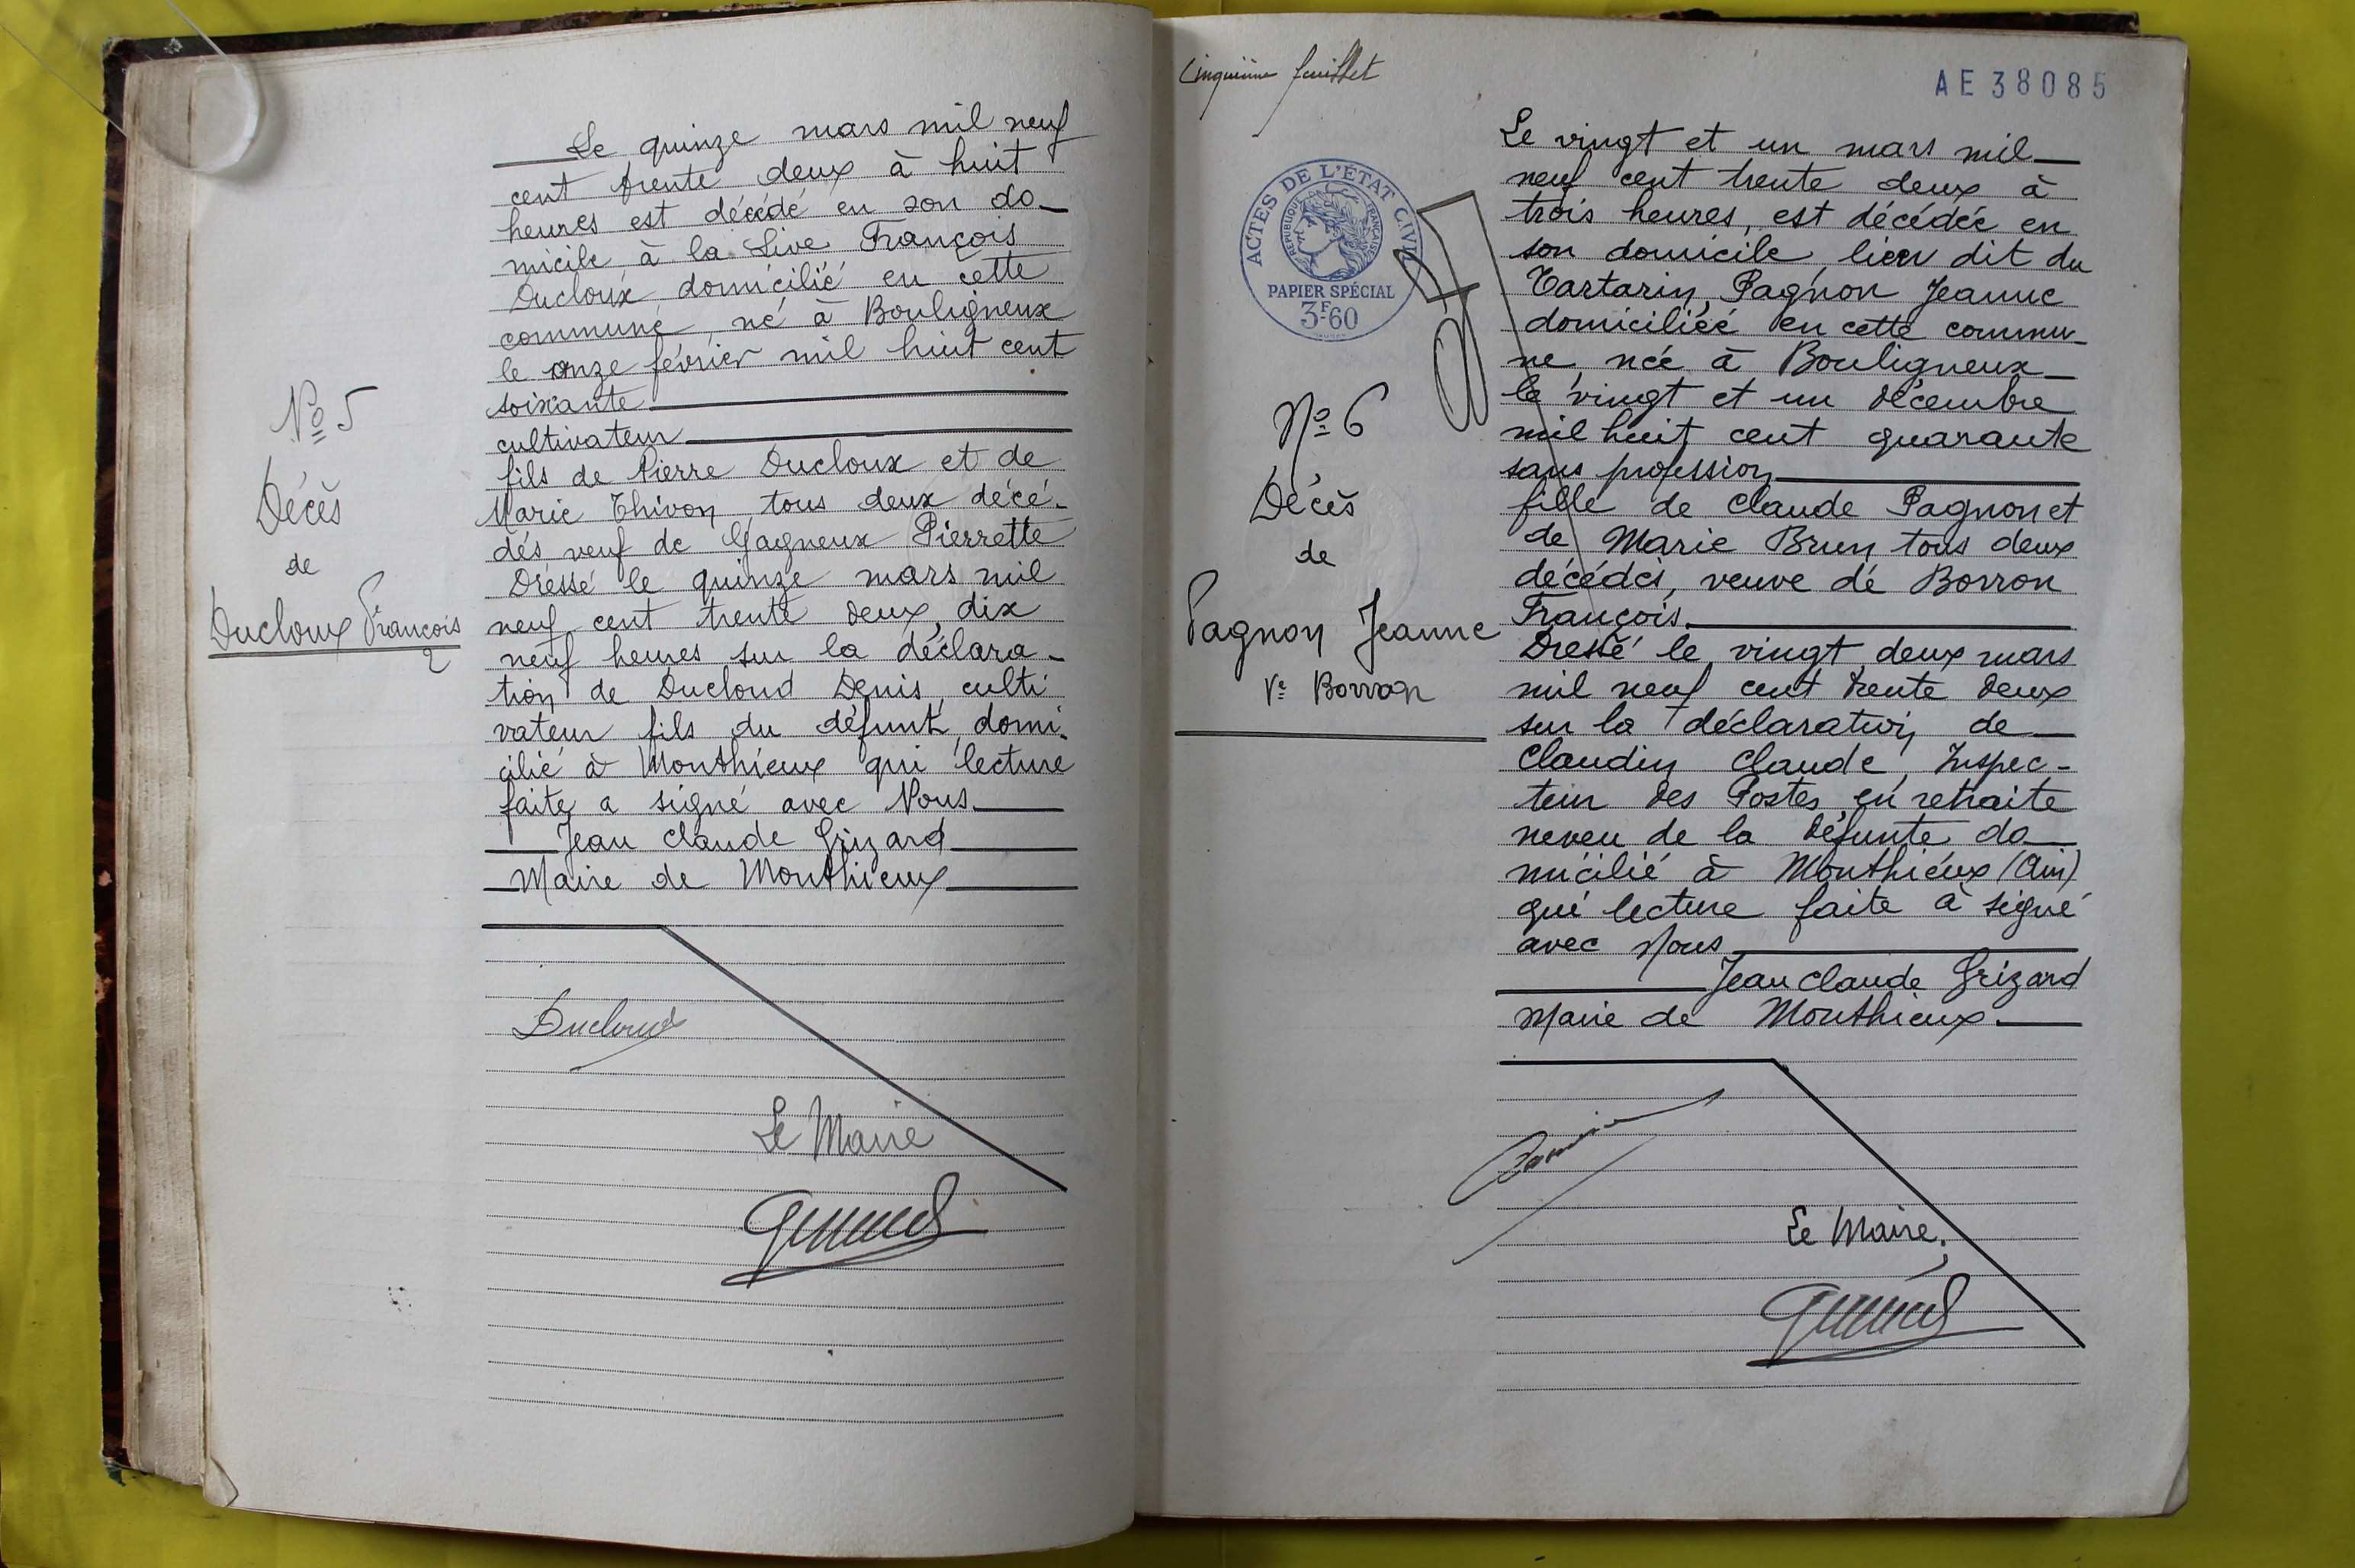 Le quinze mars mil neuf
cent trente deux à huit
heures est décédé en son do-
micile à la Live François
Ducloux domicilié en cette
commune, né à Bouligneux
le onze février mil huit cent
soixante
cultivateur
fils de Pierre Ducloux et de
Marie Thivon tous deux décé-
dés veuf de Gagneux Pierrette
Dressé le quinze mars mil
neuf cent trente deux, dix
neuf heures sur la déclara-
tion de Ducloud Denis, culti
vateur fils du défunt, domi-
cilié à Monthieux qui lecture
faite a signé avec Nous
Jean Claude Grizard
Maire de Monthieux
N° 5
Décès
de
Ducloux François
2
Ducloud
Le Maire
Cinquième feuillet
AE 38085
ACTES DE L'ÉTAT CIVIL
RÉPUBLIQUE FRANÇAISE
PAPIER SPÉCIAL
3F60
N° 6
Décès
de
Pagnon Jeanne
Ve Borron
Le vingt et un mars mil
neuf cent trente deux à
trois heures, est décédée en
son domicile, lieu dit du
Tartarin, Pagnon Jeanne
domiciliée en cette commu-
ne, née à Bouligneux
le vingt et un décembre
mil huit cent quarante
sans profession
fille de Claude Pagnon et
de Marie Brun tous deux
décédés, veuve de Borron
François.
Dressé le vingt deux mars
mil neuf cent trente deux
sur la déclaration de
Claudin Claude, Inspec-
teur des Postes en retraite
neveu de la défunte do
micilié à Monthieux (Ain)
qui lecture faite à signé
avec Nous
Jean Claude Grizard
Maire de Monthieux.
Le Maire,